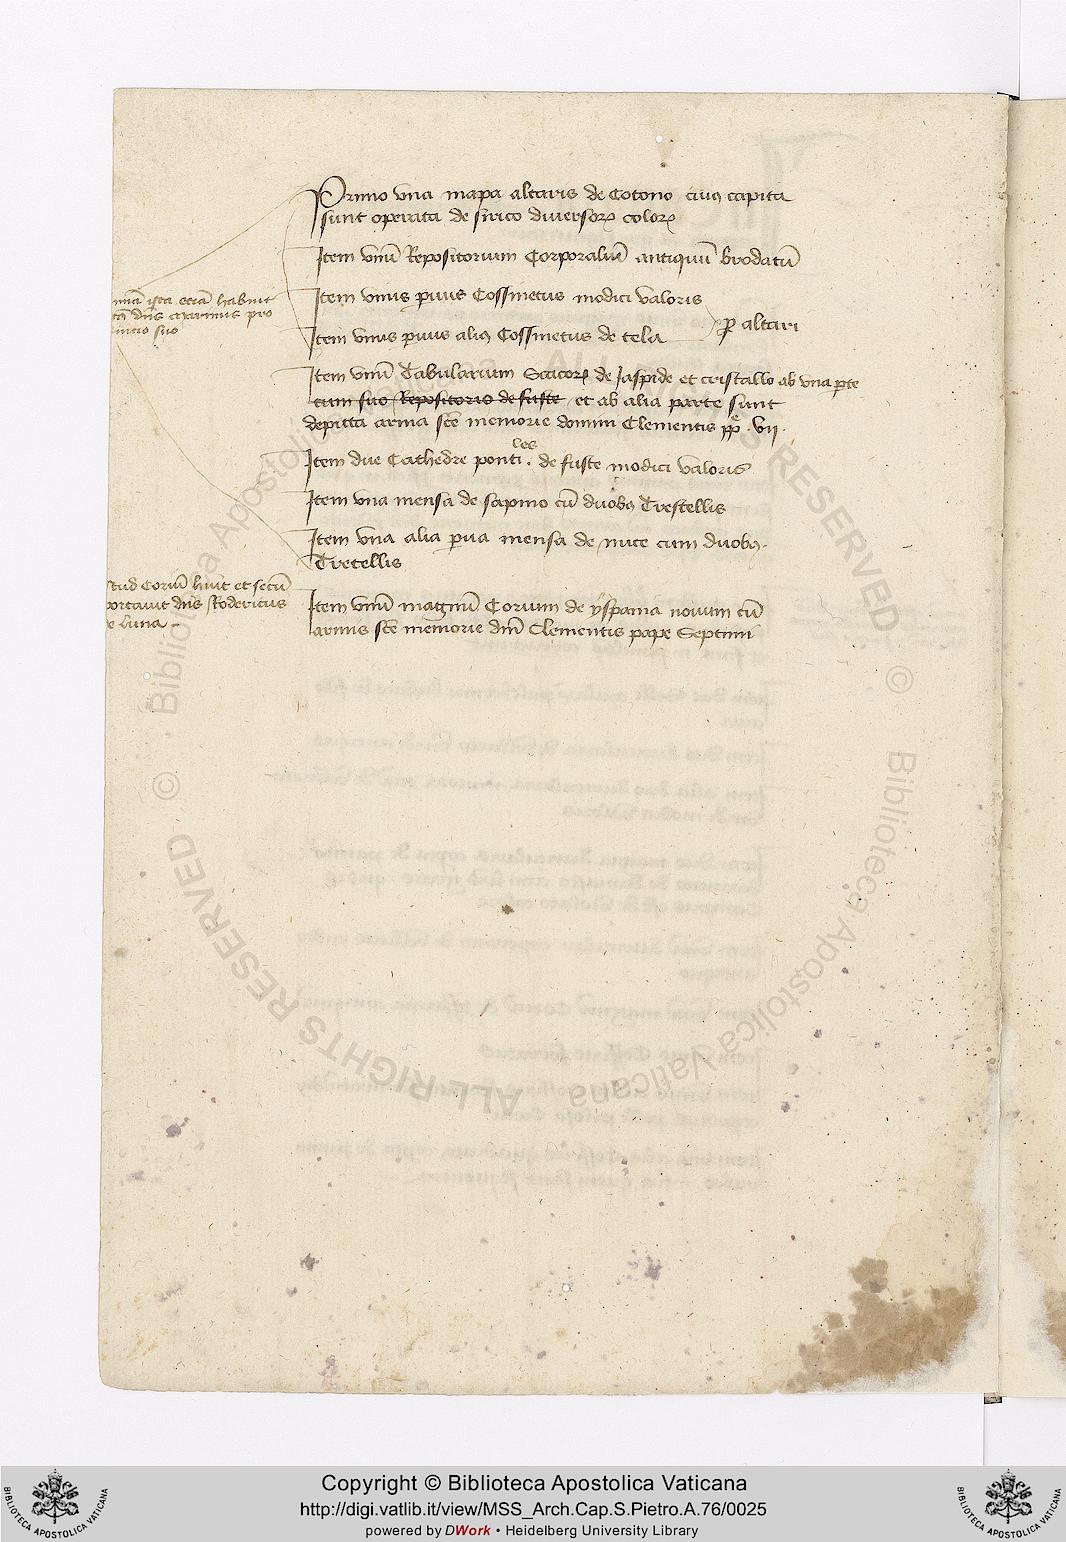 Primo vna mapa altaris de Cotono cuius capita
sunt operata de sirico diuersorum colorum
Item vnum Repositorium Corporalium antiquum brodatum
Item vnus paruus Cossinetus modici valoris
Item vnus paruus alius Cossinetus de tela
pro altari
Item vnum Tabularium Scacorum de Jaspide et cristallo ab vna parte
cum suo Repositorio de fuste et ab alia parte sunt
depicta arma sce memorie domini Clementis pp. vij.
Item due Cathedre pontiles de fuste modici valoris
Item vna mensa de sapino cum duobus Trestellis
Item vna alia parua mensa de nuce cum duobus
Tretellis
Item vnum magnum Corium de yspania nouum cum
armis sce memorie dni Clementis pape Septimi
ista etiam habuit
dns pro
suo
Corium huit et secum
portauit dns Rodericus
de luna
© Biblioteca Apostolica Vaticana ALL RIGHTS RESERVED
© Biblioteca Apostolica Vaticana ALL RIGHTS RESERVED
BIBLIOTECA APOSTOLICA VATICANA
Copyright © Biblioteca Apostolica Vaticana
http://digi.vatlib.it/view/MSS_Arch.Cap.S.Pietro.A.76/0025
powered by DWork • Heidelberg University Library
BIBLIOTECA APOSTOLICA VATICANA